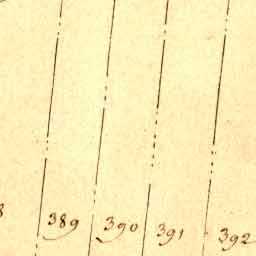 8 389 390 391 392